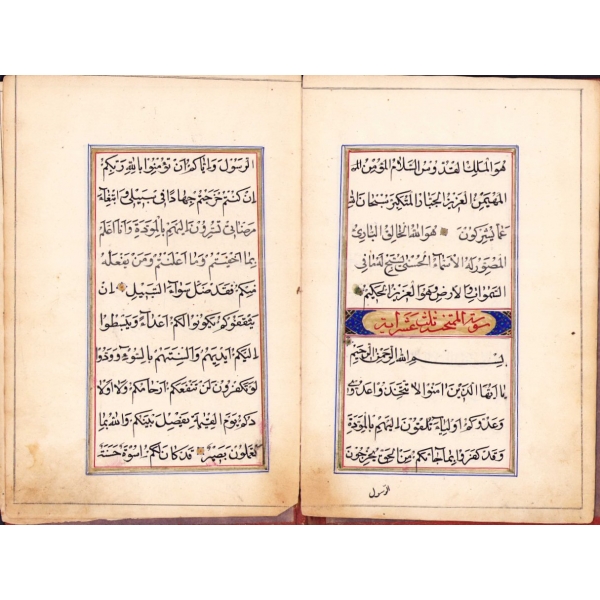 هو الملك القدوس السلام المؤمن المه
المهيمن العزيز الجبار المتكبر سبحان الله
عما يشركون هو الله الخالق البارئ
المصور له الأسماء الحسنى يسبح له ما في
السموات والارض وهو العزيز الحكيم
سورة الممتحنة ثلث عشر اية
بسم الله الرحمن الرحيم
يا ايها الذين امنوا لا تتخذوا عدوي
وعدوكم اولياء تلقون اليهم بالمودة
وقد كفروا بما جاءكم من الحق يخرجون
الرسول
الرسول واياكم ان تؤمنوا بالله ربكم
ان كنتم خرجتم جهادا في سبيلي وابتغاء
مرضاتي تسرون اليهم بالمودة وانا اعلم
بما اخفيتم وما اعلنتم ومن يفعله
منكم فقد ضل سواء السبيل ان
يثقفوكم يكونوا لكم اعداء ويبسطوا
اليكم ايديهم والسنتهم بالسوء وودوا
لو تكفرون لن تنفعكم ارحامكم ولا اولا
دكم يوم القيمة يفصل بينكم والله بما
تعملون بصير قد كانت لكم اسوة حسنة